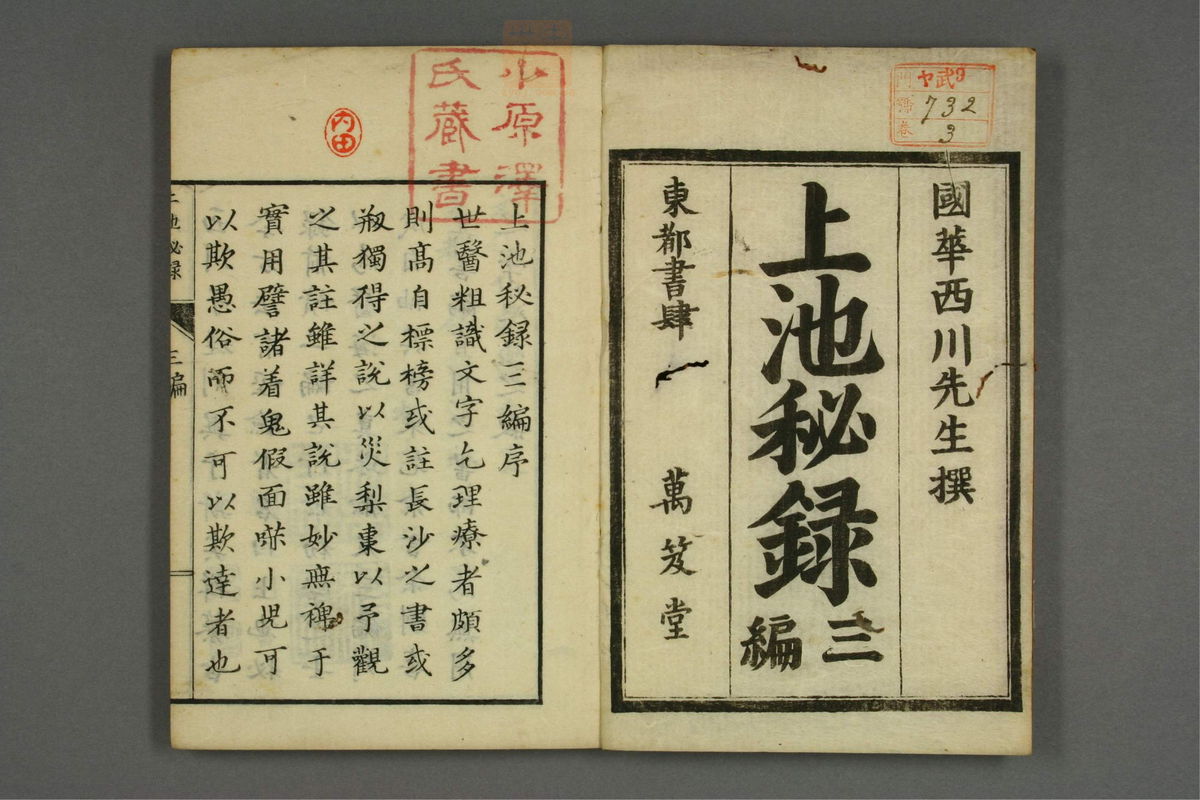 國華西川先生撰
上池秘録
三編
東都書肆 萬笈堂
ヤ武9
門
號
卷
732
3
小原澤
氏藏書
内田
上池秘録三編序
世醫粗識文字乞理療者頗多
則髙自標榜或註長沙之書或
剏獨得之說以災梨棗以予觀
之其註雖詳其說雖妙無裨于
實用譬諸着鬼假面啼小兒可
以欺愚俗而不可以欺達者也
上池秘録
三編